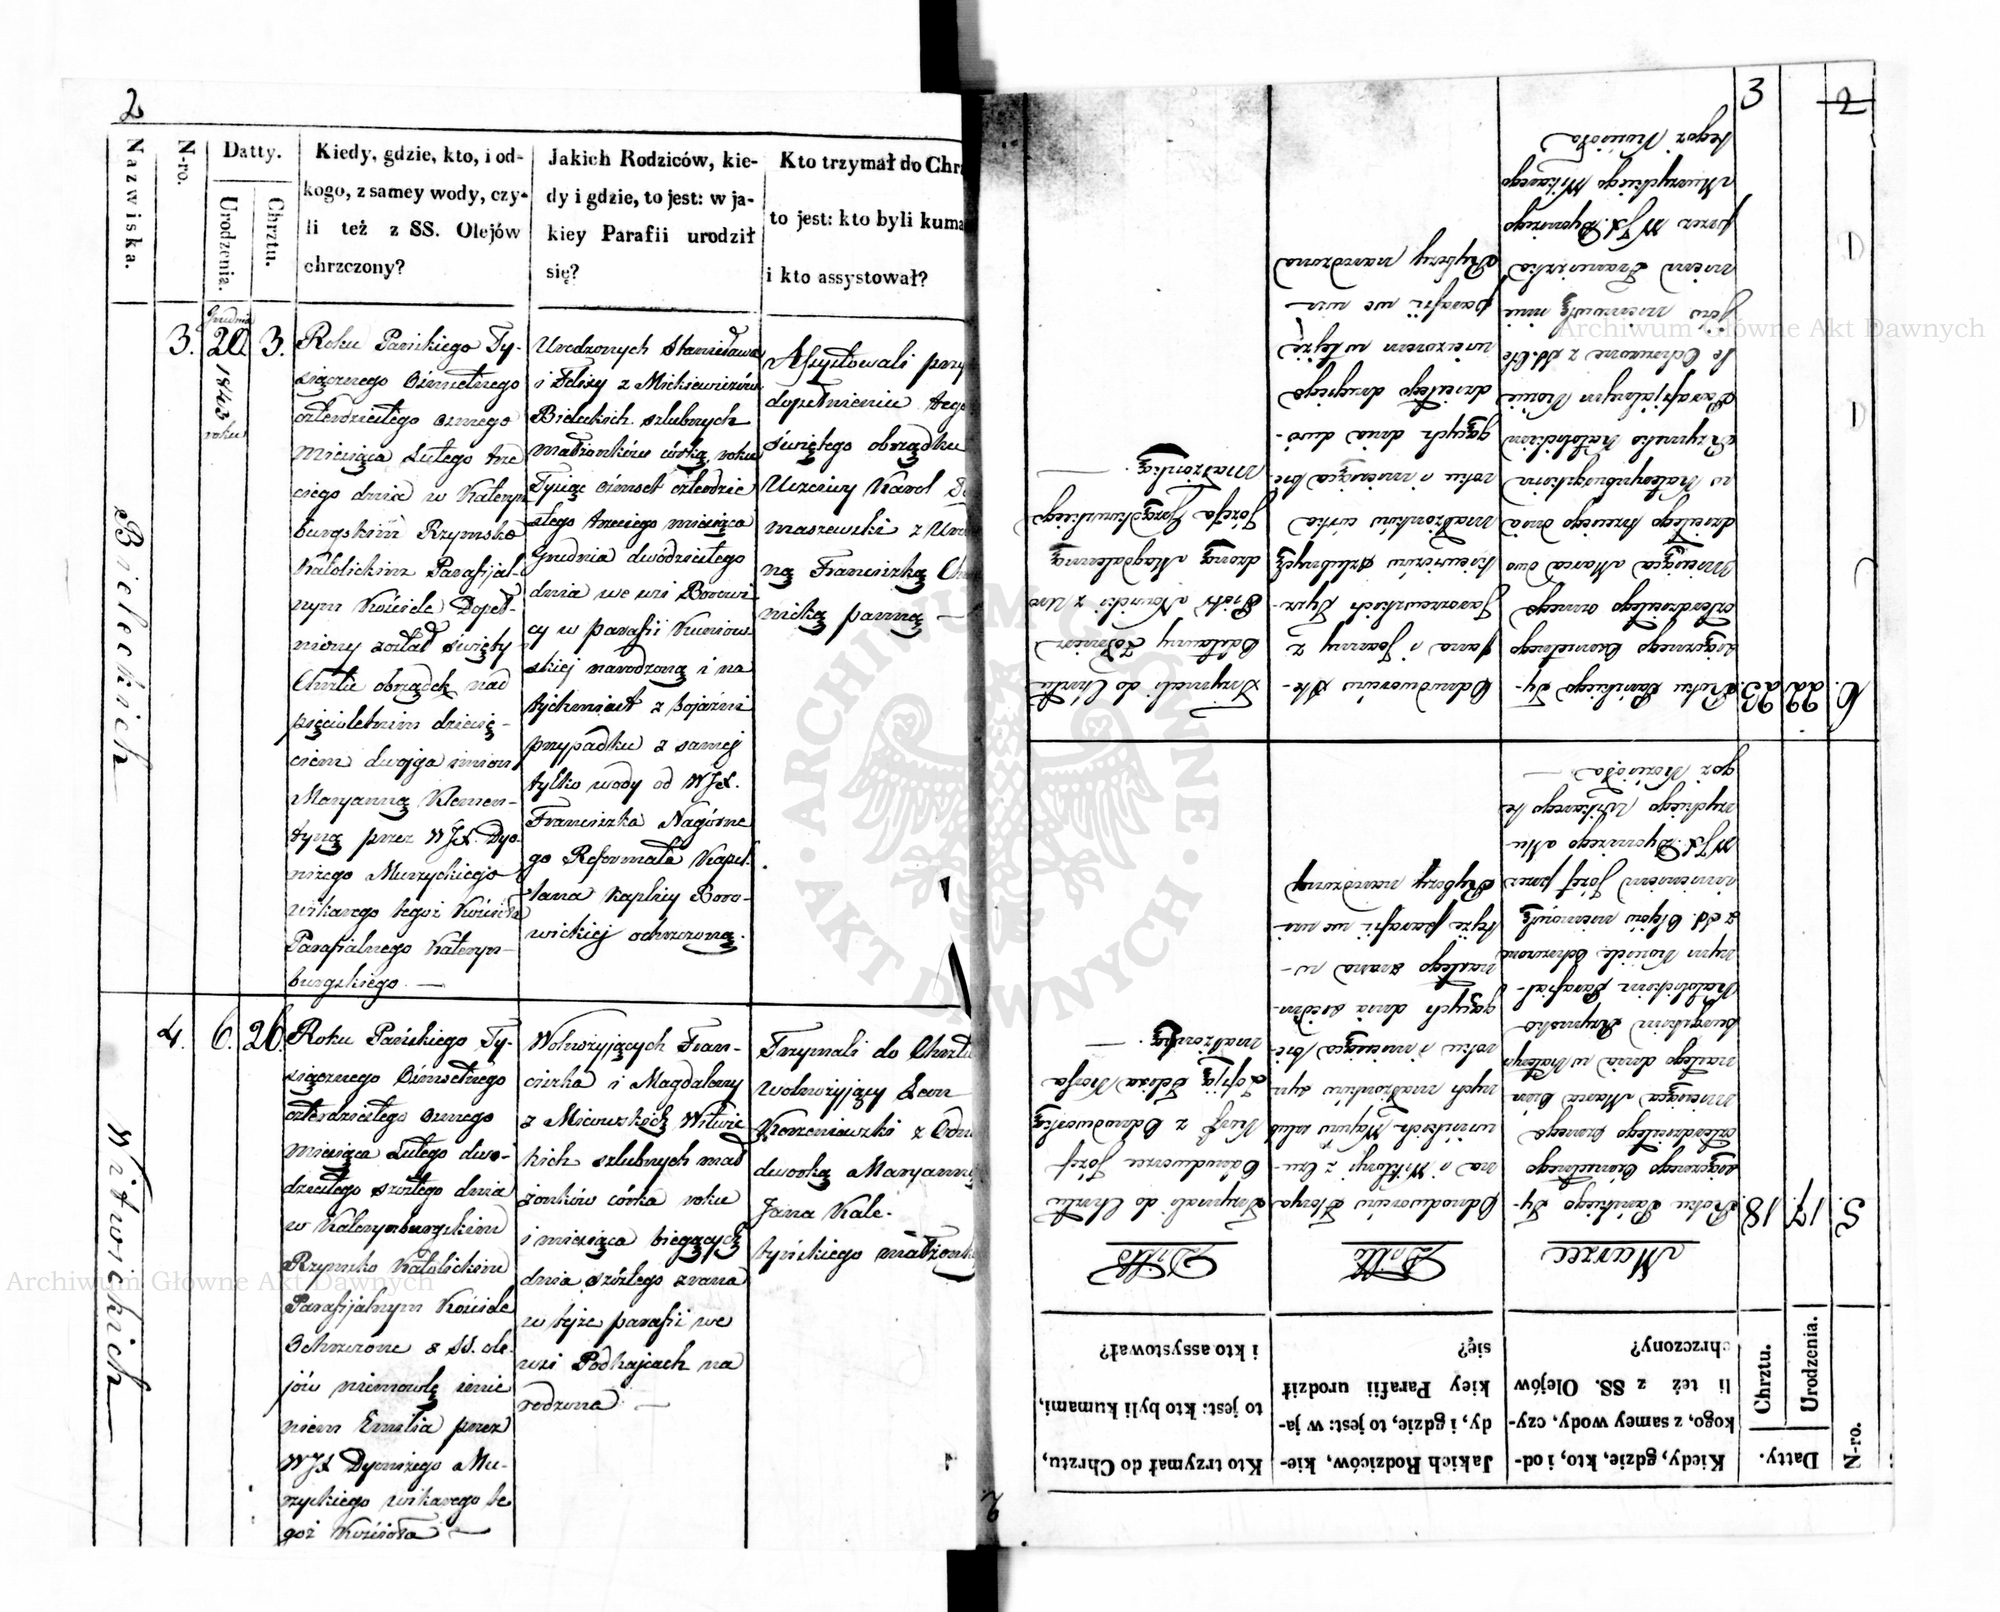 2
Nazwiska.
N-ro.
Datty.
Urodzenia.
Chrztu.
Kiedy, gdzie, kto, i od-
kogo, z samey wody, czy-
li też z SS. Olejów
chrzczony?
Jakich Rodziców, kie-
dy i gdzie, to jest: w ja-
kiey Parafii urodził
się?
Kto trzymał do Chrz
to jest: kto byli kuma
i kto assystował?
Bieleckich
3.
Grudnia
20
1843
roku
3.
Roku Pańskiego Ty-
siącznego Ośmsetnego
czterdziestego osmego
miesiąca Lutego trze
ciego dnia w Kateryn
burgskim Rzymsko
Katolickim Parafijal-
nym Kościele Dopeł-
niony został święty
Chrztu obrządek nad
pięcioletnim dziecię-
ciem dwojga imion
Maryanną Klemen-
tyną przez WJX. Dyo-
nizego Muzyckiego
wikarego tegoż Kościoła
Parafialnego Kateryn-
burgskiego. —
Urodzonych Stanisława
i Felixy z Mickiewiczów
Bieleckich szlubnych
małżonków córką, roku
Tysiąc ośmset czterdzie
stego trzeciego miesiąca
Grudnia dwódziestego
dnia we wsi Borowi
cy w parafii Kuniow-
skiej narodzoną i na
tychmiast z bojaźni
przypadku z samej
tylko wody od WJX.
Franciszka Nagórne
go Reformata Kapel-
lana Kaplicy Boro-
wickiej ochrzczoną.
Assystowali przy
dopełnieniu tego
świętego obrządku
Uczciwy Karol To
maszewski z Uro
ną Franciszką
nicką panną —
Witwickich
4.
6.
26.
Roku Pańskiego Ty-
siącznego Ośmsetnego
czterdziestego osmego
miesiąca Lutego dwó-
dziestego szóstego dnia
w Katerynburgskim
Rzymsko Katolickim
Parafijalnym Kościele
Ochrzczone z SS. ole-
jów niemowlę imie
niem Emilia przez
WJX Dyonizego Mu-
zyckiego wikarego te
goż Kościoła —
Wolnożyjących Fran-
ciszka i Magdaleny
z Witwic
kich szlubnych mał
żonków córka roku
i miesiąca bieżących
dnia szóstego zrana
w tejże parafii we
wsi Podhajcach na
rodzona —
Trzymali do Chrztu
wolnożyjący Leon
Korzeniowski z Odno
dworką Maryanną
Jana Kale-
tyńskiego małżonk
3
2
N-ro.
Datty.
Urodzenia.
Chrztu.
Kiedy, gdzie, kto, i od-
kogo, z samey wody, czy-
li też z SS. Olejów
chrzczony?
Jakich Rodziców, kie-
dy, i gdzie, to jest: w ja-
kiey Parafii urodził
się?
Kto trzymał do Chrztu,
to jest: kto byli kumami,
i kto assystował?
Marzec
Ditto
Ditto
5.
17.
18.
Roku Pańskiego Ty-
siącznego Ośmsetnego
czterdziestego osmego
miesiąca Marca Ośm
nastego dnia w Kateryn
burgskim Rzymsko
Katolickim Parafial-
nym Kościele Ochrzczone
z SS. Olejów niemowlę
imieniem Józef przez
WJX. Dyonizego Mu-
zyckiego Wikarego te
goż Kościoła —
Odnodworców Florya
na i Wiktoryi z
szlub
nych małżonków syn
roku i miesiąca bie-
żących dnia siedm-
nastego zrana w -
tejże parafii we wsi
Rybczy narodzony
Trzymali do Chrztu
Odnodworzec Józef
z Odnodworką
Zofiją Felixa
małżonką. —
6.
22.
23.
Roku Pańskiego Ty-
siącznego Ośmsetnego
czterdziestego osmego
miesiąca Marca dwó
dziestego trzeciego dnia
w Katerynburgskim
Rzymsko Katolickim
Parafijalnym Koście
le Ochrzczone z SS. Ole
jów niemowlę imie
niem Franciszka
przez WJX. Dyonizego
Muzyckiego Wikarego
tegoż Kościoła
Odnodworców
Jana i Joanny z
Jaroszewskich
szlubnych
małżonków córka
roku i miesiąca bie-
żących dnia dwó-
dziestego drugiego
wieczorem w tejże
parafii we wsi
Rybczy narodzona
Trzymali do Chrztu
Odstawny Żołnierz
Piotr Nowicki z Uro
dzoną Magdaleną
Józefa
małżonką. —
2.
ARCHIWUM GŁÓWNE · AKT DAWNYCH ·
Archiwum Główne Akt Dawnych
Archiwum Główne Akt Dawnych